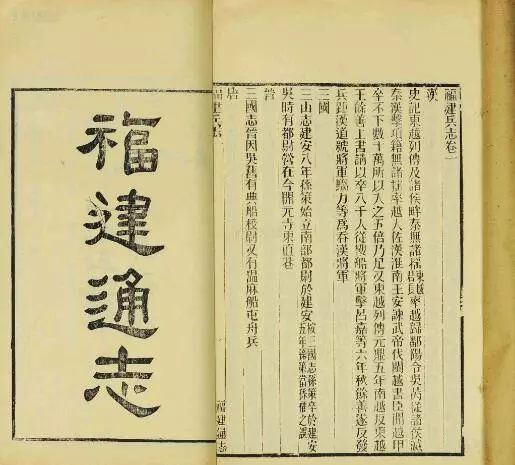 福建兵志卷一
漢
史記東越列傳及諸侯畔秦無諸搖率越歸鄱陽令吳芮從諸侯滅
秦漢擊項籍無諸搖率越人佐漢淮南王安諫武帝伐閩越書臣聞越甲
卒不下數十萬所以入之五倍乃足又東越列傳元鼎五年南越反東越
王餘善上書請以卒八千人從樓船將軍擊呂嘉等六年秋餘善遂反發
兵距漢道號將軍騶力等為吞漢將軍
三國
三山志建安八年孫策始立南部都尉於建安按三國志孫策卒於建安五年孫策當孫權之誤
吳時有都尉營在今開元寺東直巷
晉
三國志晉因吳舊有典船校尉又有温麻船屯舟兵
唐
福建通志
福建通志